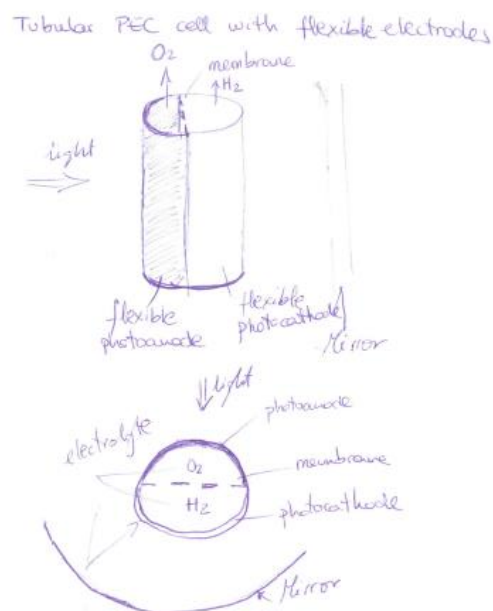 Tubular PEC cell with flexible electrodes
O2
membrane
H2
light
flexible photoanode
flexible photocathode
Mirror
light
photoanode
electrolyte
O2
membrane
H2
photocathode
Mirror